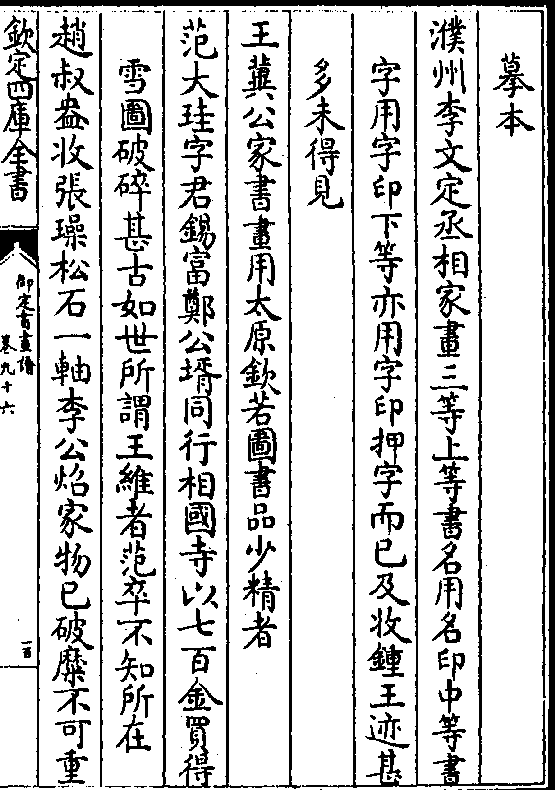 摹本
濮州李文定丞相家畫三等上等書名用名印中等書
字用字印下等亦用字印押字而已及收鍾王迹甚
多未得見
王冀公家書畫用太原欽若圖書品少精者
范大珪字君錫富鄭公壻同行相國寺以七百金買得
雪圖破碎甚古如世所謂王維者范卒不知所在
趙叔盎收張璪松石一軸李公炤家物已破糜不可重
欽定四庫全書
御定書畫譜
卷九十六
一百